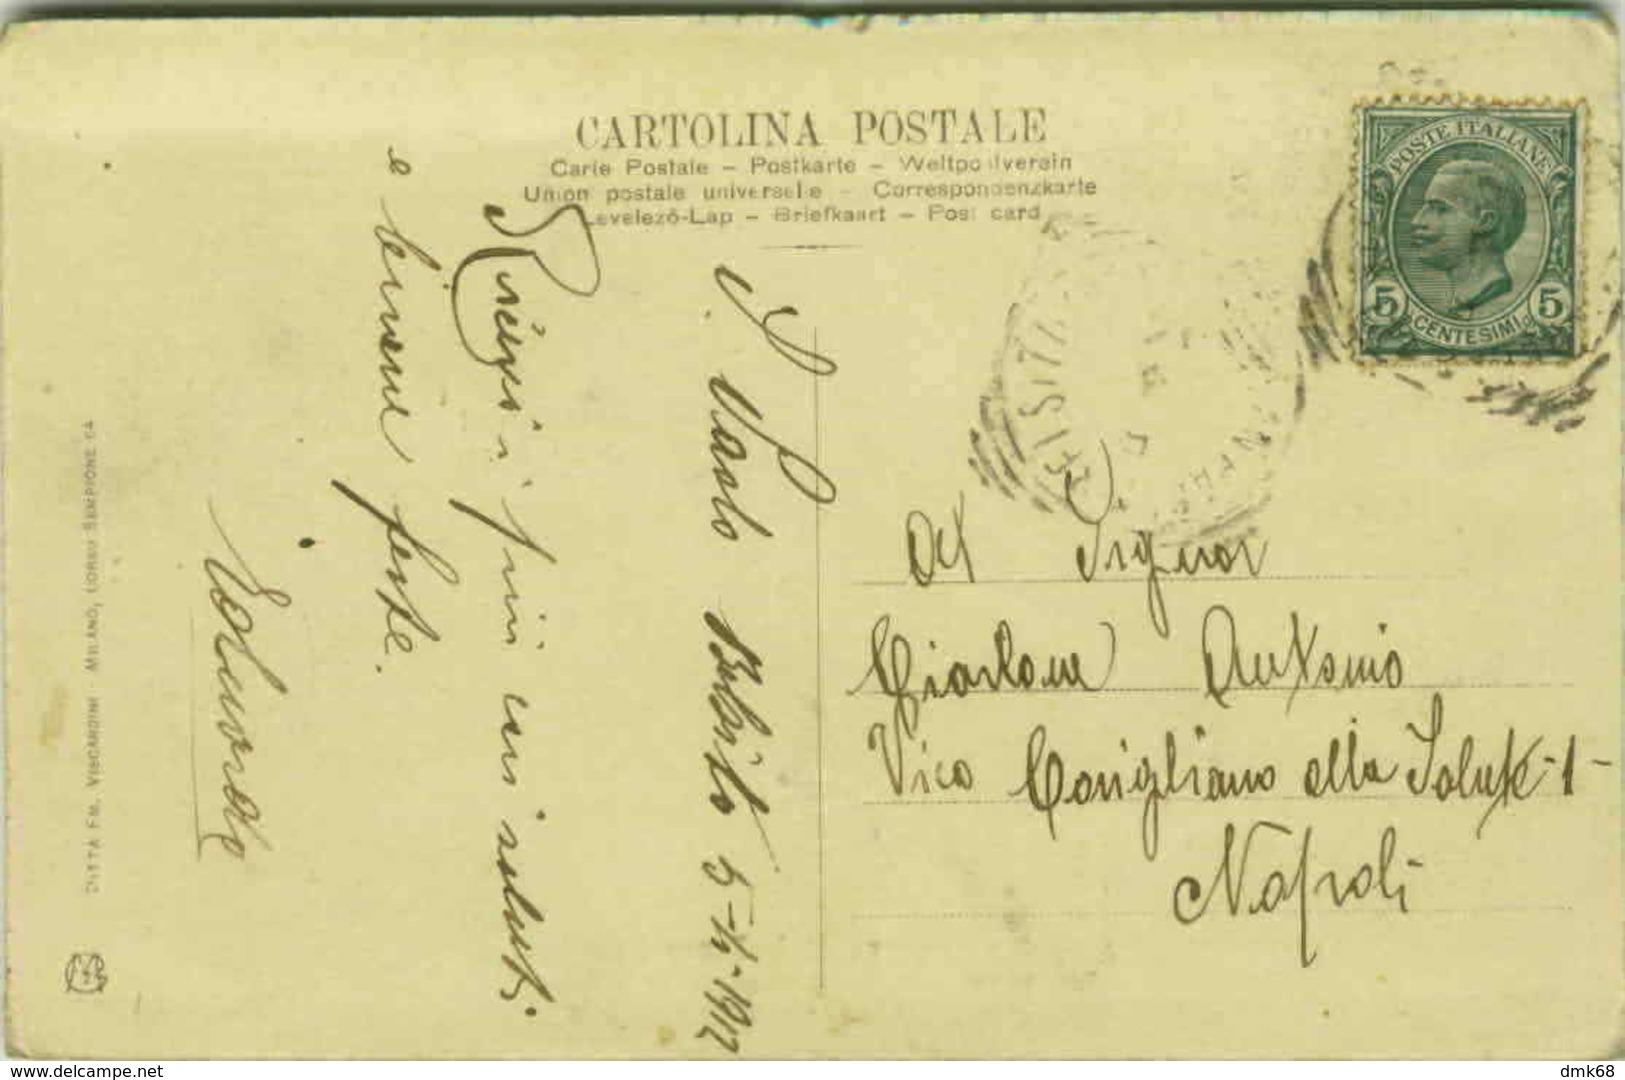 CARTOLINA POSTALE
Carte Postale – Postkarte – Weltpostverein
Union postale universelle – Correspondenzkarte
Levelező-Lap – Briefkaart – Post card
POSTE ITALIANE
5 CENTESIMI 5
S. Paolo Belsito 5-4-1912
Ricevi i più cari saluti
e buone feste.
Edoardo
Al Signor
Giarlone Antonio
Vico Conigliano alla Salute -1-
Napoli
DITTA FM. VISCARDINI - MILANO, CORSO SEMPIONE 64
delcampe.net
dmk68